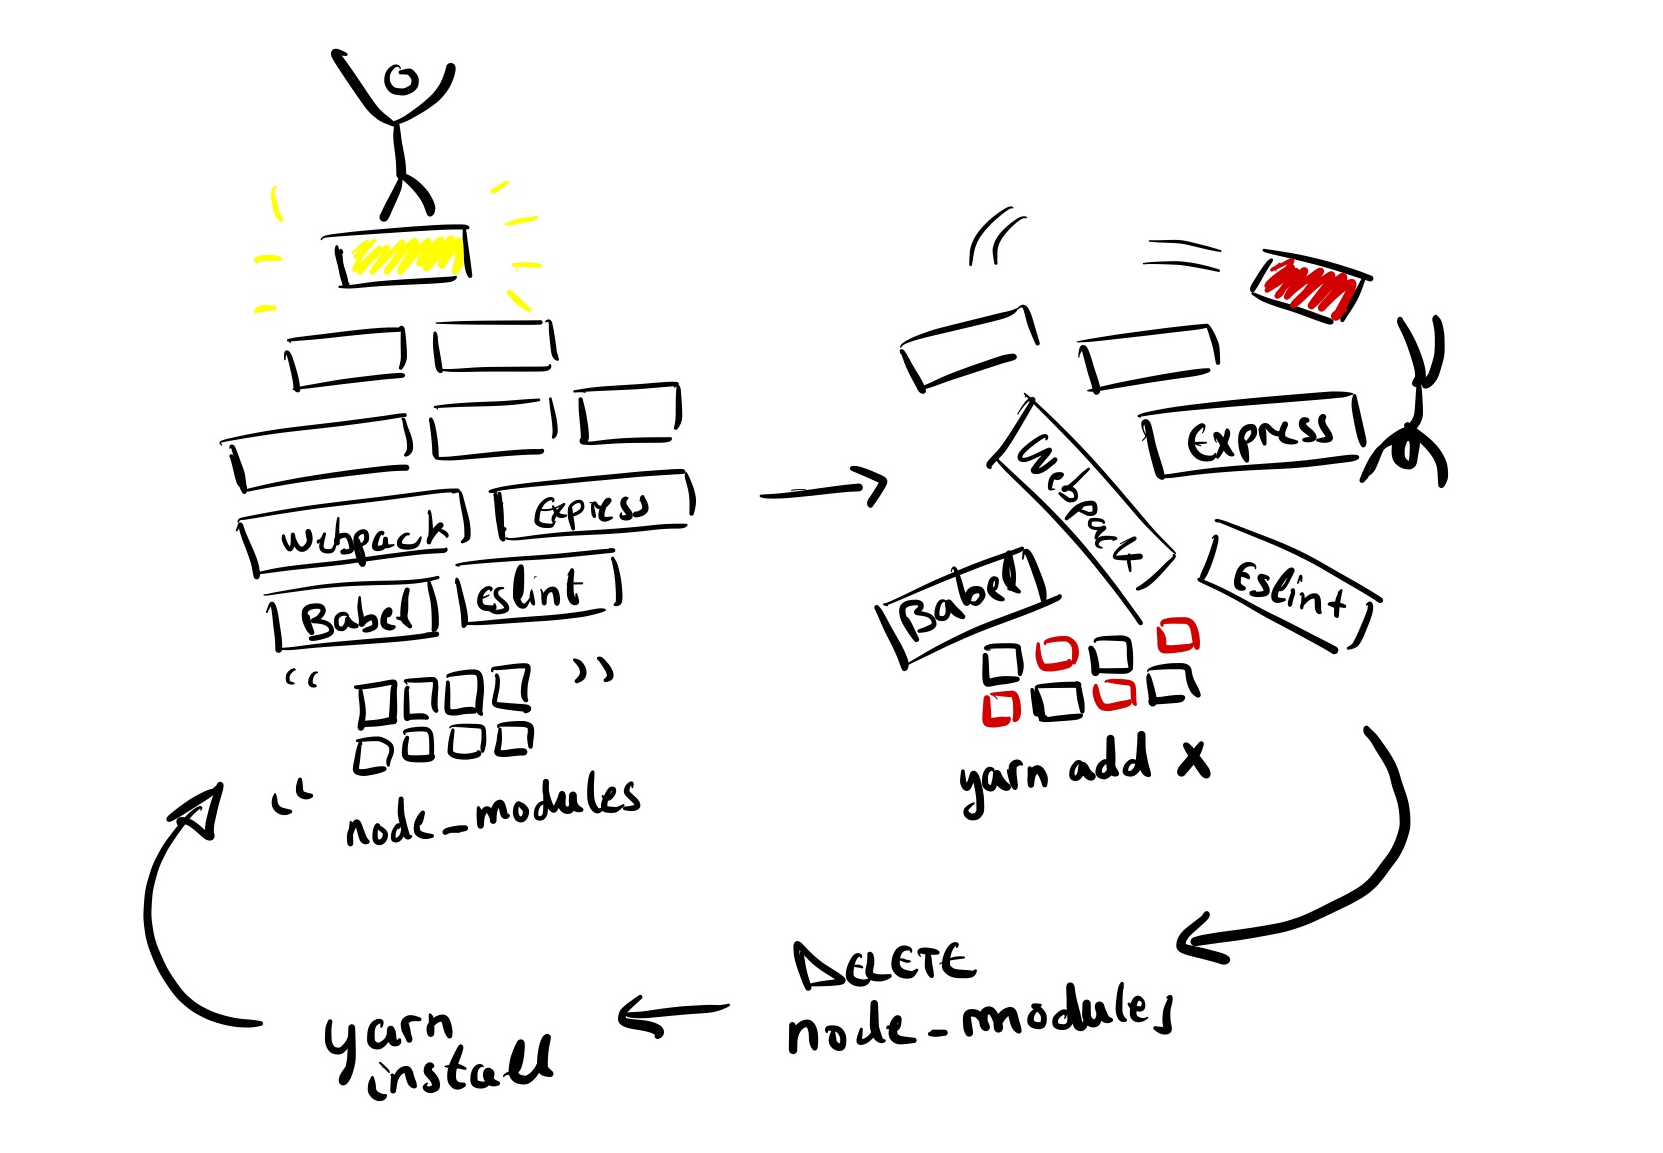 webpack
Express
Babel
eslint
node_modules
Express
Webpack
Babel
Eslint
yarn add X
DELETE
node_modules
yarn
install